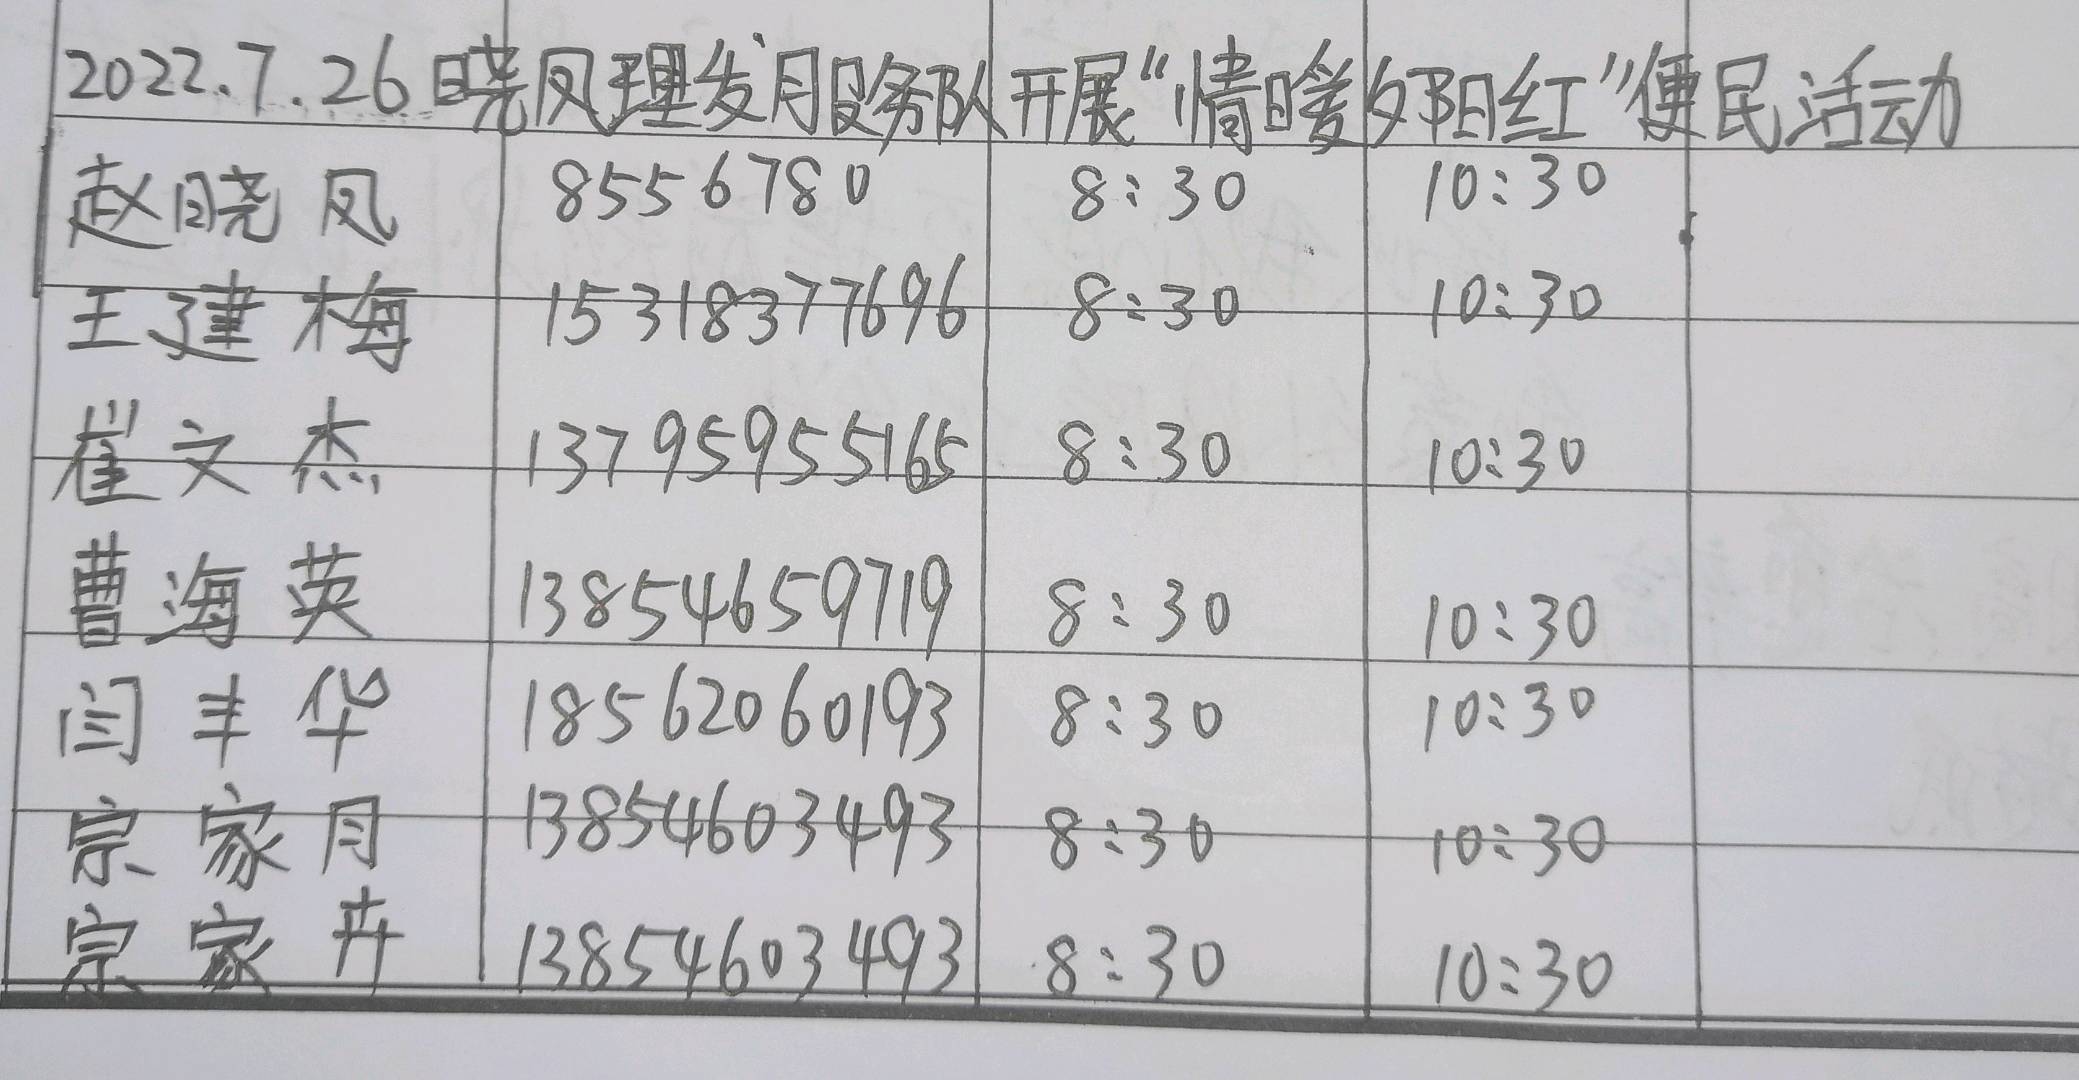 2022.7.26晓凤理发服务队开展“情暖夕阳红”便民活动
赵晓凤 8556780 8:30 10:30
王建梅 15318377696 8:30 10:30
崔文杰 13795955165 8:30 10:30
曹海英 13854659719 8:30 10:30
闫丰华 18562060193 8:30 10:30
宗家月 13854603493 8:30 10:30
宗家卉 13854603493 8:30 10:30